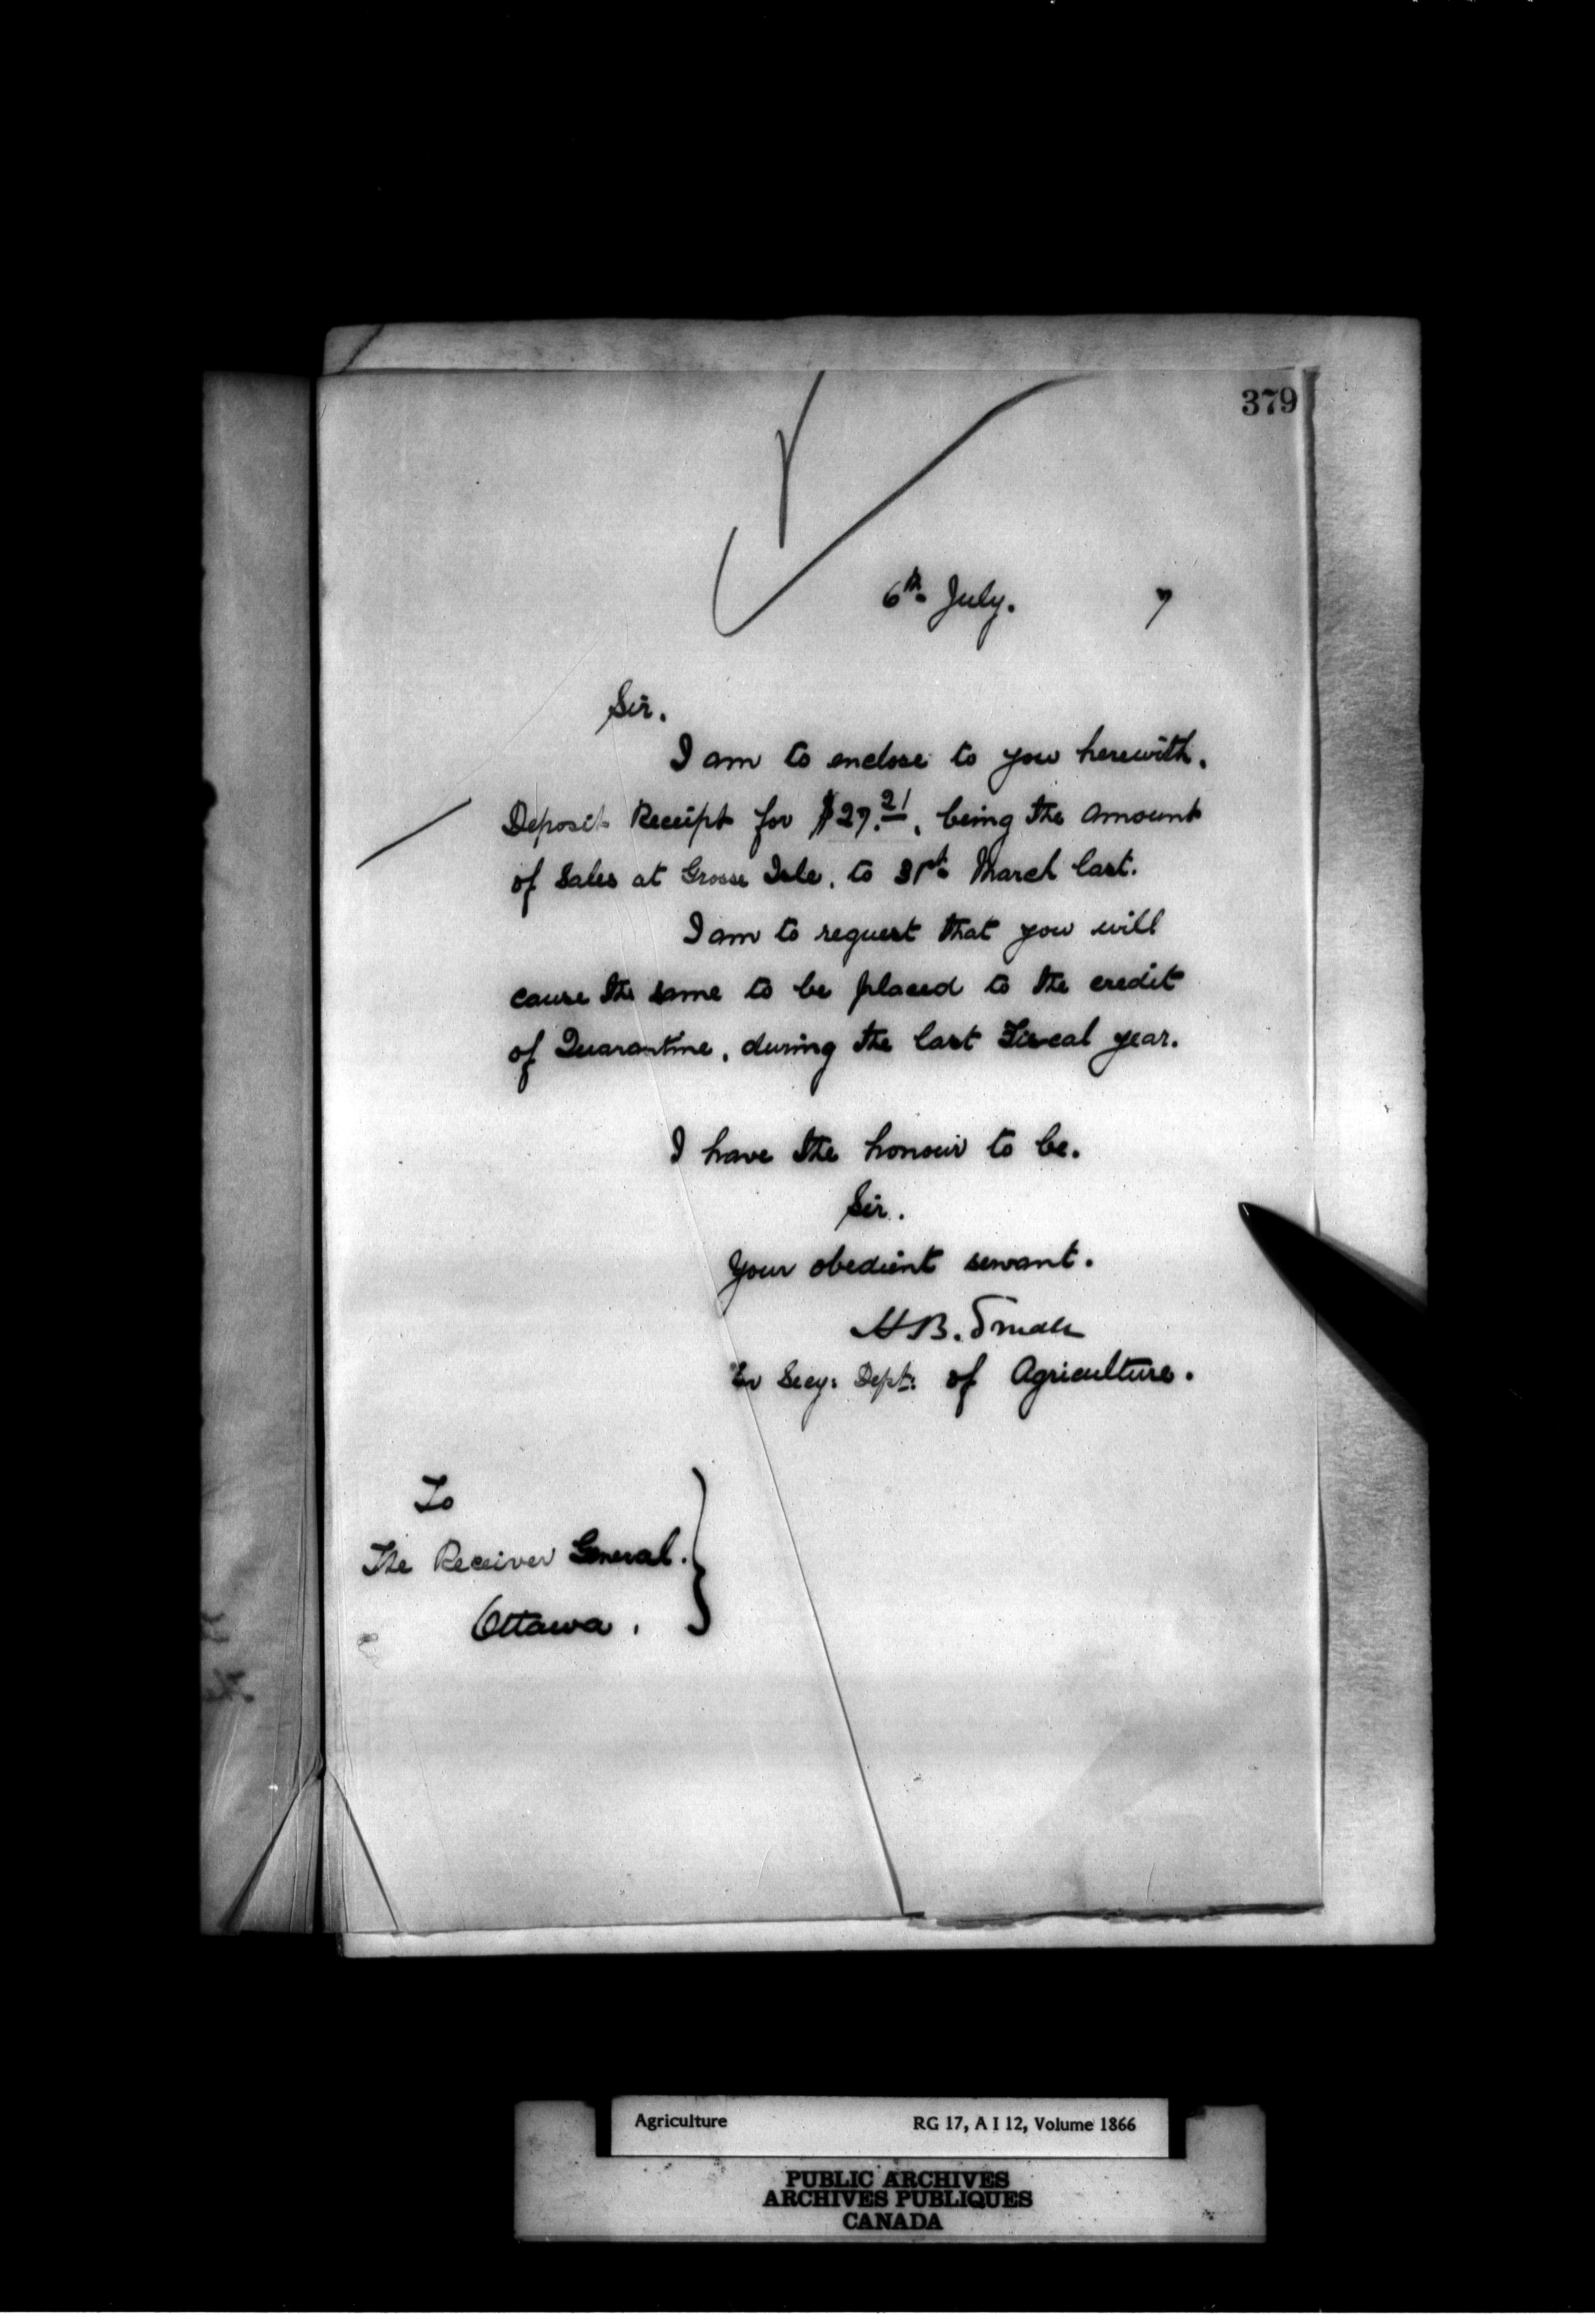 379
6th July. 7
Sir.
I am to enclose to you herewith.
Deposit Receipt for $27.21, being the amount
of Sales at Grosse Isle, to 31st March last.
I am to request that you will
cause the same to be placed to the credit
of Quarantine, during the last Fiscal year.
I have the honour to be.
Sir.
Your obedient servant.
H.B. Small
Secy: Dept: of Agriculture.
To
The Receiver General.
Ottawa.
Agriculture RG 17, A I 12, Volume 1866
PUBLIC ARCHIVES
ARCHIVES PUBLIQUES
CANADA